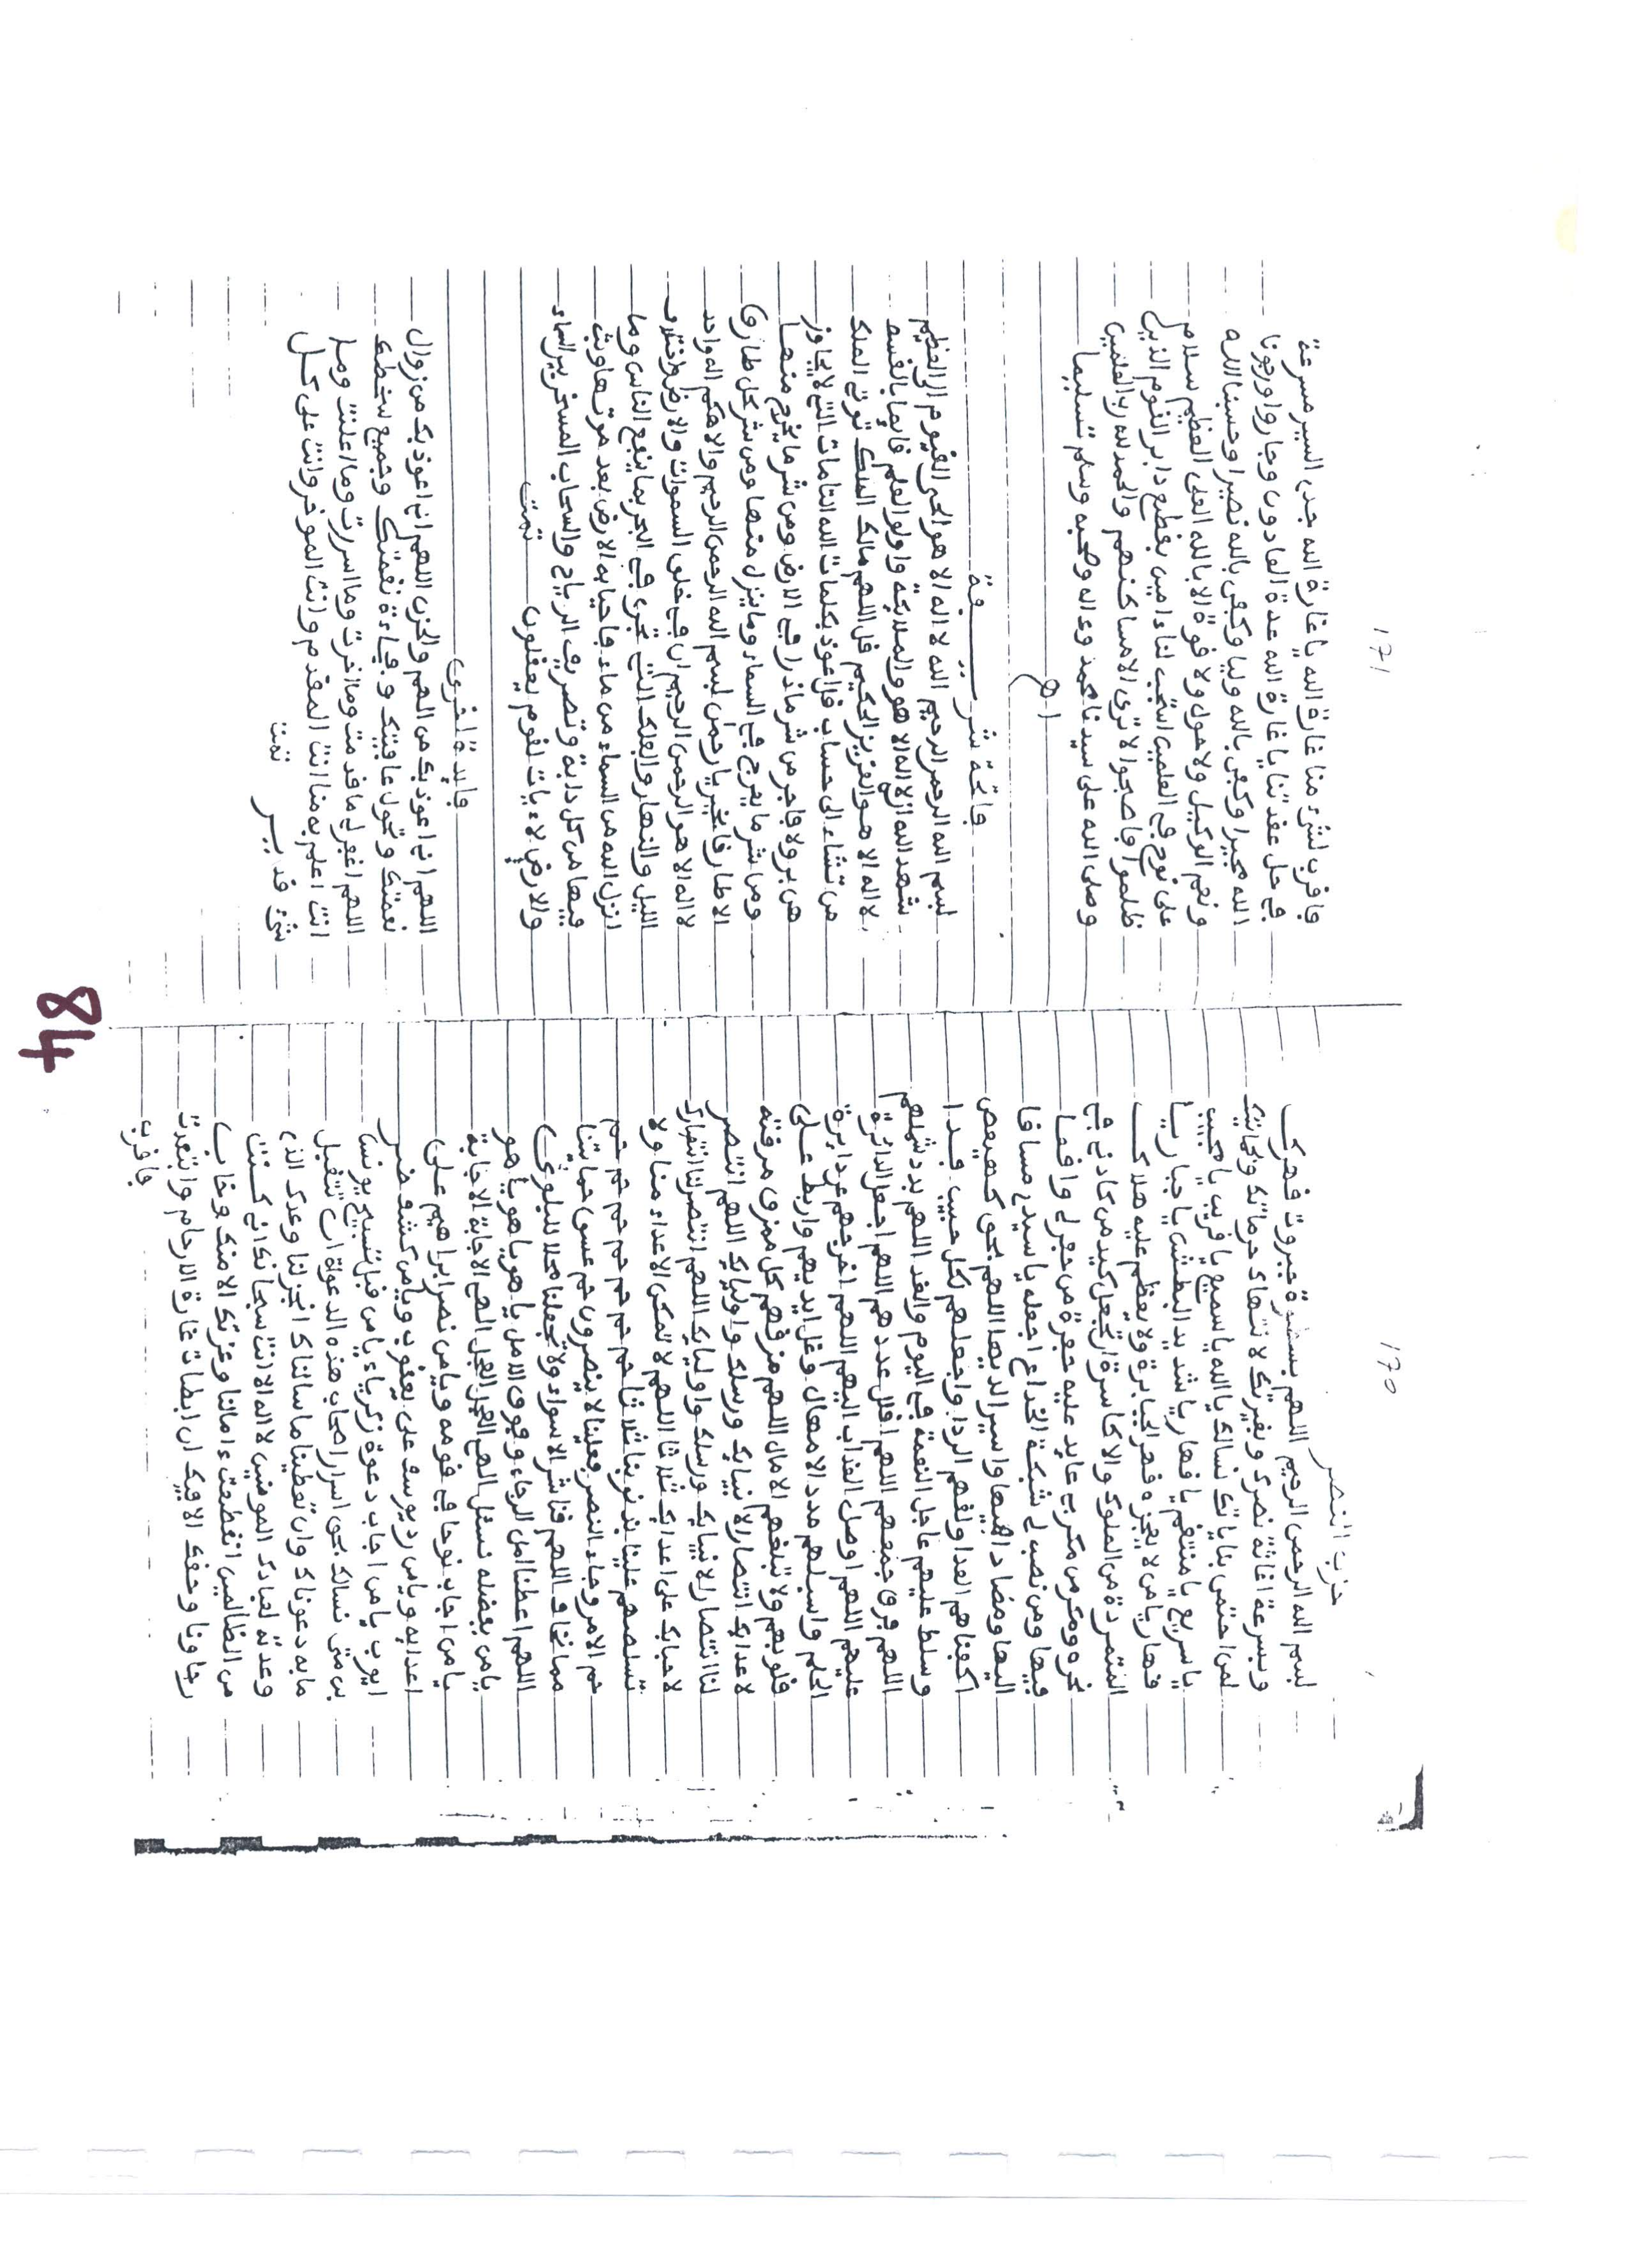 ١٧٠
حزب النصر
بسم الله الرحمن الرحيم اللهم بسطوة جبروت قهرك
وبسرعة اغاثة نصرك وبغيرتك لانتهاك حرماتك وبحمايتك
لمن احتمى بئاياتك نسالك يا الله يا سميع يا قريب يا مجيب
يا سريع يا منتقم يا قهار يا شديد البطش يا جبار يا
قهار يا من لا يعجزه قهر الجبابرة ولا يعظم عليه هلاك
المتمردة من الملوك والاكاسرة ان تجعل كيد من كادني في
نحره ومكر من مكر بي عايد عليه حفرة من حفر لي واقعا
فيها ومن نصب لي شبكة الخداع اجعله يا سيدي مساقا
اليها ومصادا فيها واسيرا لديها اللهم بحق كهيعص
اكفنا هم العدا ولقهم الردا واجعلهم لكل حبيب فدا
وسلط عليهم عاجل النقمة في اليوم والغد اللهم بدد شملهم
اللهم فرق جمعهم اللهم اقلل عددهم اللهم اجعل الدائرة
عليهم اللهم اوصل العذاب اليهم اللهم اخرجهم عن دايرة
الحلم واسلبهم مدد الامهال وغل ايديهم واربط على
قلوبهم ولا تبلغهم الامال اللهم مزقهم كل ممزق مزقته
لاعدايك انتصارا لانبيايك ورسلك واوليايك اللهم انتصر
لنا انتصارك لانبيايك ورسلك واوليايك اللهم انتصر لنا انتصارك
لاحبابك على اعدايك ثلاثا اللهم لا تمكن الاعداء منا ولا
تسلطهم علينا بذنوبنا ثلاثا حم حم حم حم حم حم حم
حم الامر وجاء النصر فعلينا لا ينصرون حم عسق حمايتنا
مما نخاف اللهم قنا شر الاسواء ولا تجعلنا محلا للبلوى
اللهم اعطنا امل الرجاء وفوق الامل يا هو يا هو يا هو
يا من بفضله نسئل الهي العجل العجل الهي الاجابة الاجابة
يا من اجاب نوحا في قومه ويا من نصر ابراهيم على
اعدايه ويا من رد يوسف على يعقوب ويا من كشف ضر
ايوب يا من اجاب دعوة زكرياء يا من قبل تسبيح يونس
بن متى نسالك بحق اسرار اصحاب هذه الدعوة ان تتقبل
ما به دعوناك وان تعطينا ما سالناك انجز لنا وعدك الذي
وعدته لعبادك المومنين لا اله الا انت سبحانك اني كنت
من الظالمين انقطعت ءامالنا وعزتك الا منك وخاب
رجاونا وحقك الا فيك ان ابطات غارة الارحام وابتعدت
فاقرب
١٧١
فاقرب لشيء منا غارة الله يا غارة الله جدي السير مسرعة
في حل عقدتنا يا غارة الله عدة العادون وجاروا ورجونا
الله مجيرا وكفى بالله وليا وكفى بالله نصيرا وحسبنا الله
ونعم الوكيل ولا حول ولا قوة الا بالله العلي العظيم سلام
على نوح في العلمين استجب لنا ءامين فقطع دابر القوم الذين
ظلموا فاصبحوا لا ترى الا مساكنهم والحمد لله رب العلمين
وصلى الله على سيدنا محمد وءاله وصحبه وسلم تسليما
اهـ
فاتحة شريفة
بسم الله الرحمن الرحيم الله لا اله الا هو الحي القيوم الى العظيم
شهد الله انه لا اله الا هو والملايكة واولوا العلم قايما بالقسط
لا اله الا هو العزيز الحكيم قل اللهم مالك الملك توتي الملك
من تشاء الى حساب قل اعوذ بكلمات الله التامات التي لا يجاوز
هن بر ولا فاجر من شر ما ذرا في الارض ومن شر ما يخرج منها
ومن شر ما يعرج في السماء وما ينزل منها ومن شر كل طارق
الا طارقا بخير يا رحمن بسم الله الرحمن الرحيم والاهكم اله واحد
لا اله الا هو الرحمن الرحيم ان في خلق السموات والارض واختلاف
الليل والنهار والفلك التي تجري في البحر بما ينفع الناس وما
انزل الله من السماء من ماء فاحيا به الارض بعد موتها وبث
فيها من كل دابة وتصريف الرياح والسحاب المسخر بين السماء
والارض لءايات لقوم يعقلون تمت
فايدة اخرى
اللهم اني اعوذ بك من الهم والحزن اللهم اني اعوذ بك من زوال
نعمتك وتحول عافيتك وفجاءة نقمتك وجميع سخطك
اللهم اغفر لي ما قدمت وما اخرت وما اسررت وما اعلنت وما
انت اعلم به منا انت المقدم وانت الموخر وانت على كل
شيء قدير تمت
84